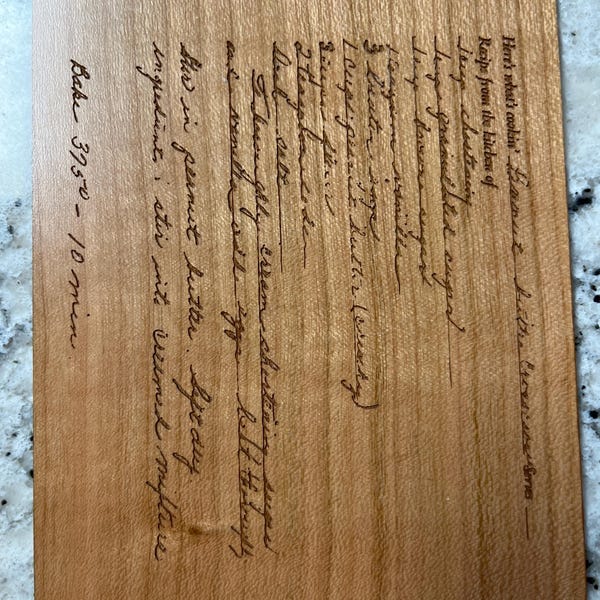 Here's what's cookin' Peanut butter Serves
Recipe from the kitchen of
1 cup shortening
1 cup granulated sugar
1 cup brown sugar
1 teaspoon vanilla
3 beaten eggs
1 cup peanut butter (creamy)
3 cups flour
2 tsp soda
Thoroughly cream shortening, sugar
and vanilla add eggs beat thoroughly
Stir in peanut butter. Sift dry
ingredients; stir into creamed mixture
Bake 375° - 10 min.